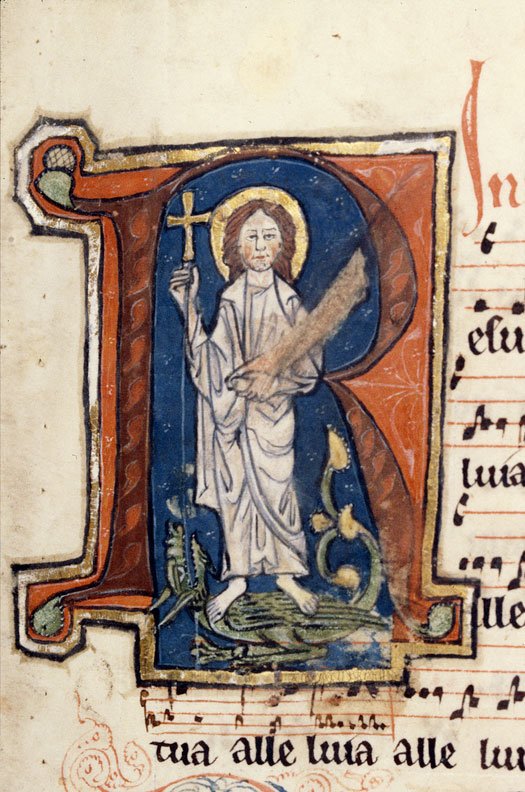 R
In
elui
luia
lle
tua alle luia alle lui